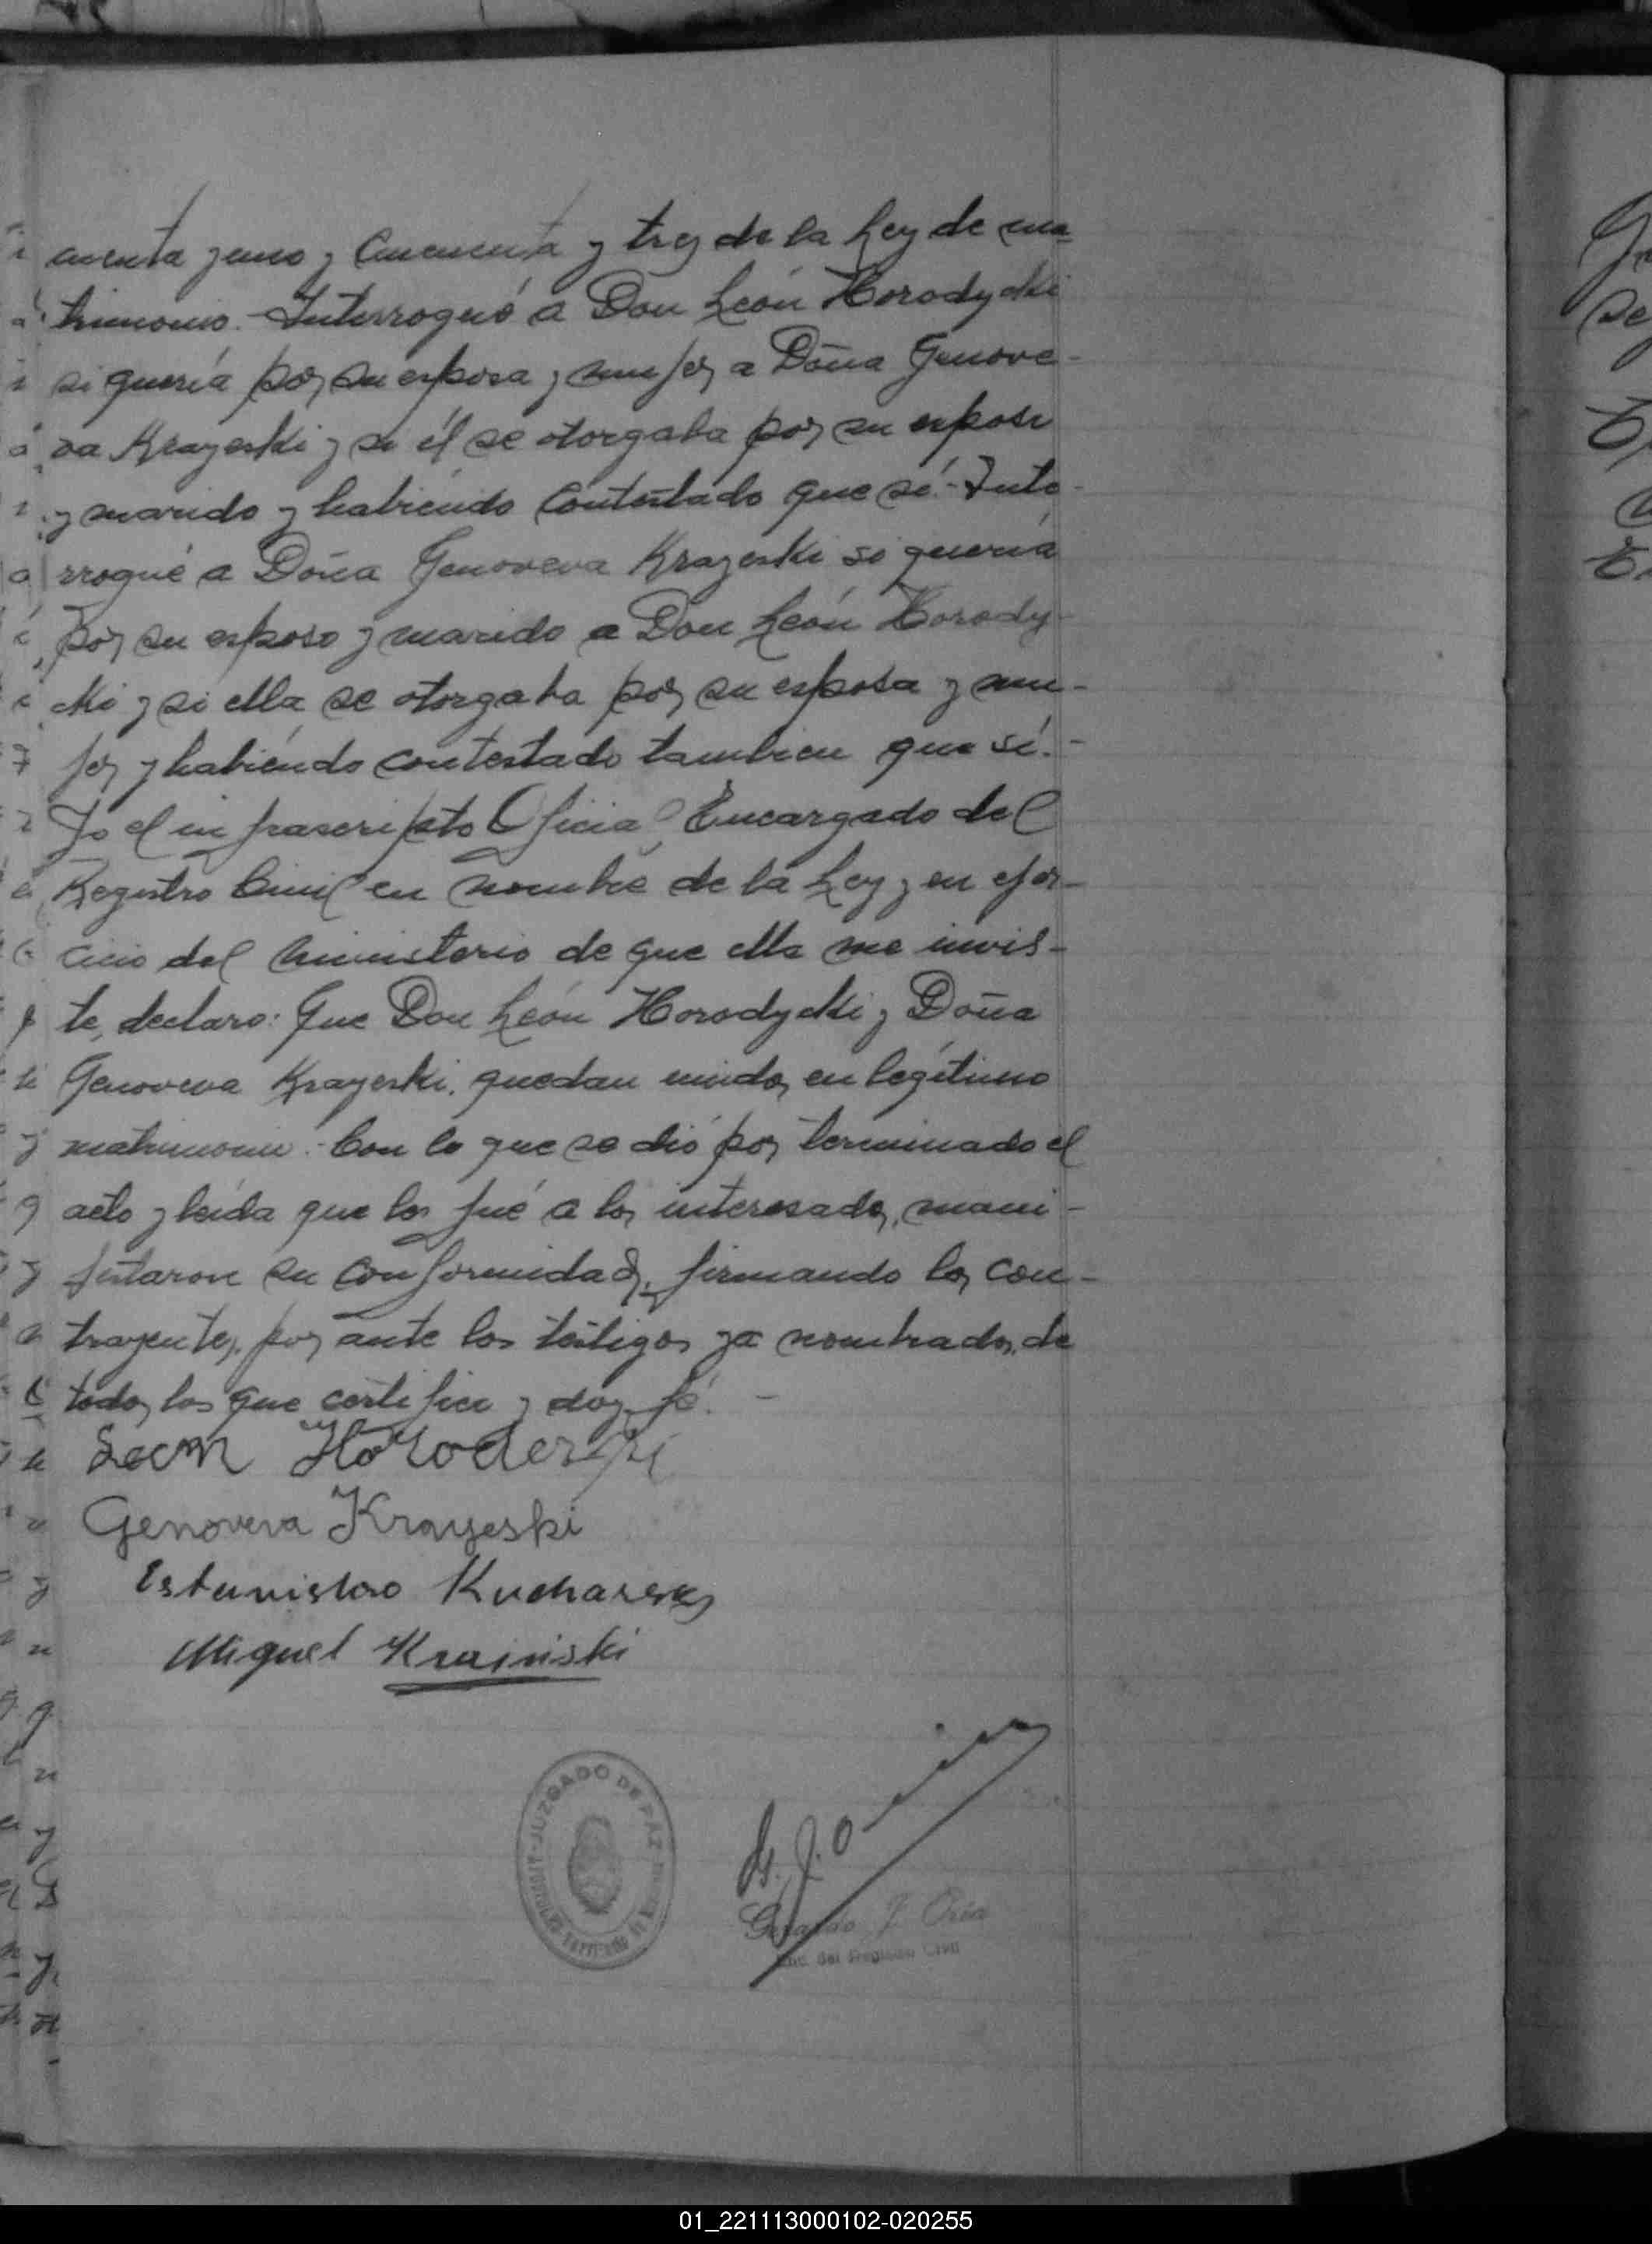 cuenta y uno y Cincuenta y tres de la Ley de ma-
trimonio.- Interrogué a Don León Horodycki
si quería por su esposa y mujer a Doña Genove-
va Krayeski y si él se otorgaba por su esposo
y marido y habiendo Contestado que sí.- Inte-
rrogué a Doña Genoveva Krayeski si quería
por su esposo y marido a Don León Horody-
cki y si ella se otorgaba por su esposa y mu-
jer y habiendo contestado tambien que sí.-
Yo el infrascripto Oficial Encargado del
Registro Civil en nombre de la Ley y en ejer-
cicio del ministerio de que ella me invis-
te, declaro: Que Don León Horodycki y Doña
Genoveva Krayeski, quedan unidos en legítimo
matrimonio.- Con lo que se dió por terminado el
acto y leída que les fué a los interesados, mani-
festaron su conformidad, firmando los con-
trayentes, por ante los testigos ya nombrados, de
todos los que certifico y doy fé.-
Leon
Genoveva Krayeski
Estanislao Kucharsky
Miguel Krainiski
JUZGADO DE PAZ
G. J. Oria
Gerardo J. Oria
Enc. del Registro Civil
01_221113000102-020255